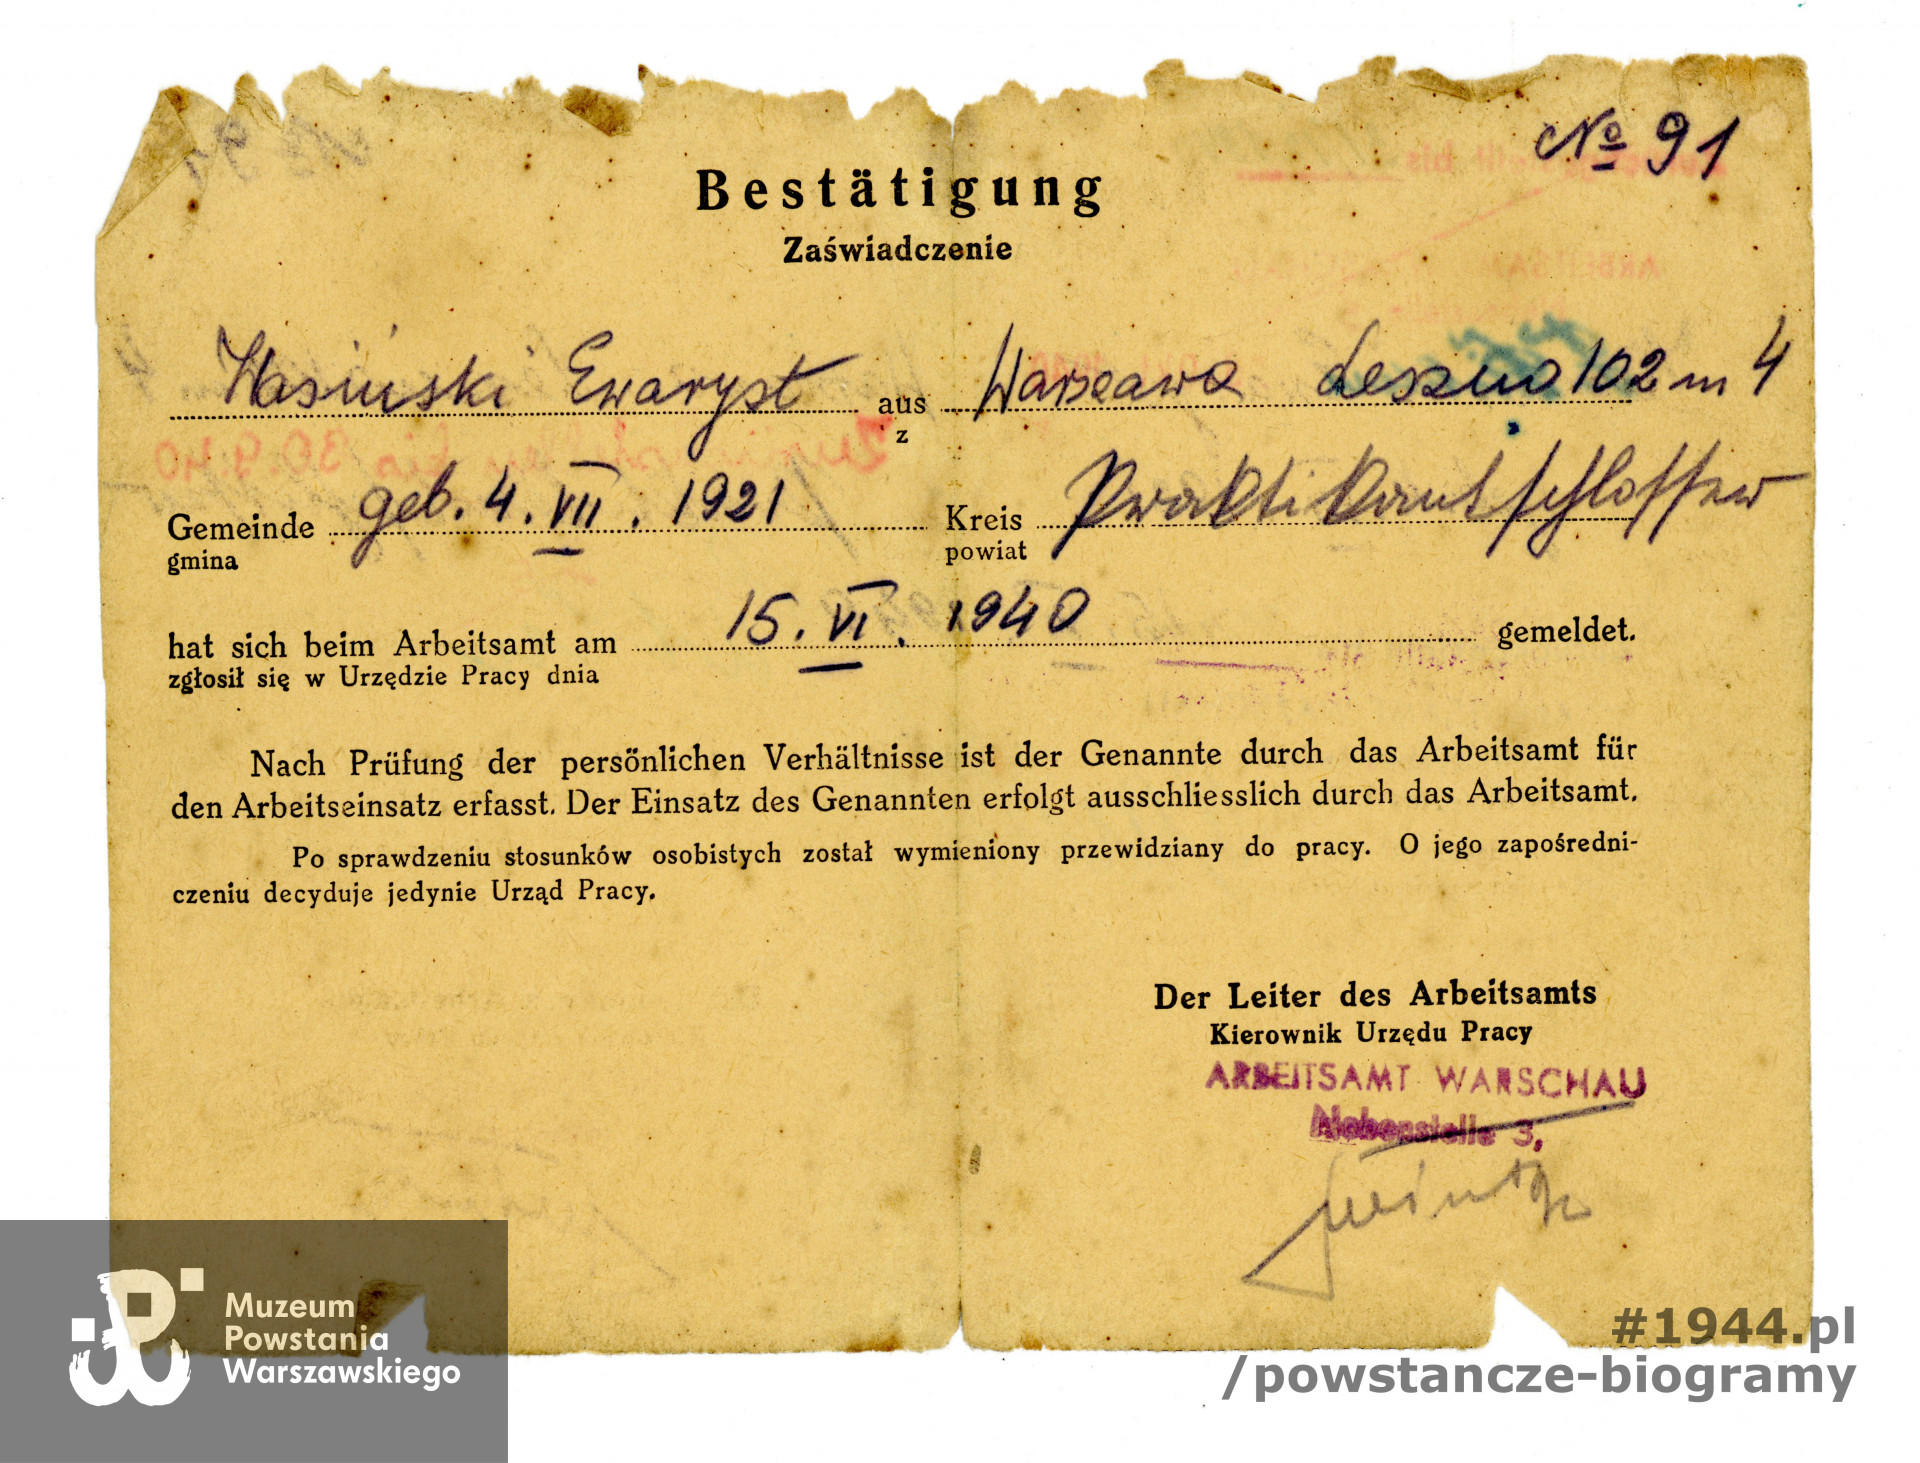 № 91
Bestätigung
Zaświadczenie
Wasiński Ewaryst aus Warszawa Leszno 102 m 4
z
Gemeinde geb. 4. VII. 1921 Kreis Praktikant schlosser
gmina powiat
hat sich beim Arbeitsamt am 15. VI. 1940 gemeldet.
zgłosił się w Urzędzie Pracy dnia
Nach Prüfung der persönlichen Verhältnisse ist der Genannte durch das Arbeitsamt für
den Arbeitseinsatz erfasst. Der Einsatz des Genannten erfolgt ausschliesslich durch das Arbeitsamt.
Po sprawdzeniu stosunków osobistych został wymieniony przewidziany do pracy. O jego zapośredni-
czeniu decyduje jedynie Urząd Pracy.
Der Leiter des Arbeitsamts
Kierownik Urzędu Pracy
ARBEITSAMT WARSCHAU
Nebenstelle 3,
Muzeum
Powstania
Warszawskiego
#1944.pl
/powstancze-biogramy